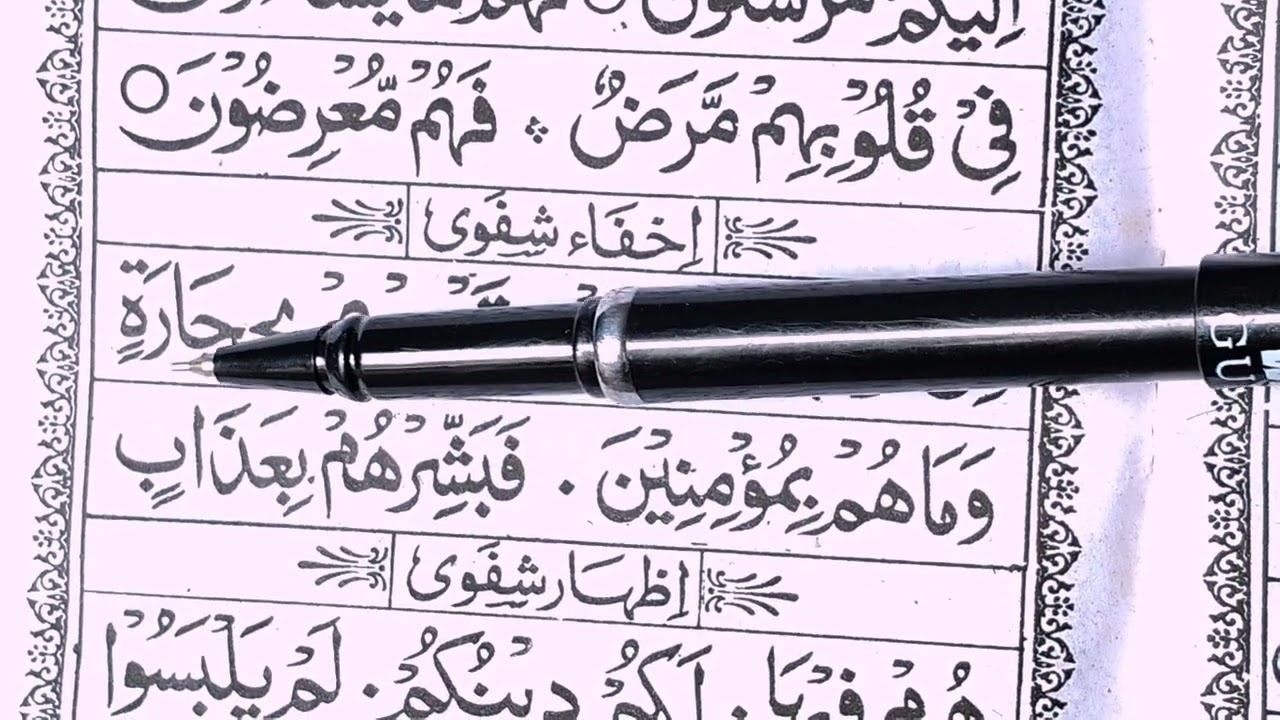 اِلَيْكُمْ مُّرْسَلُوْنَ ○
فِيْ قُلُوْبِهِمْ مَّرَضٌ ۛ فَهُمْ مُّعْرِضُوْنَ ○
اِخفَاء شِفَوِى
بِحِجَارَةٍ
وَمَا هُمْ بِمُؤْمِنِيْنَ . فَبَشِّرْهُمْ بِعَذَابٍ
اِظهَار شِفَوِى
هُمْ فِيْهَا . لَكُمْ دِيْنُكُمْ . لَمْ يَلْبَسُوْا
GU